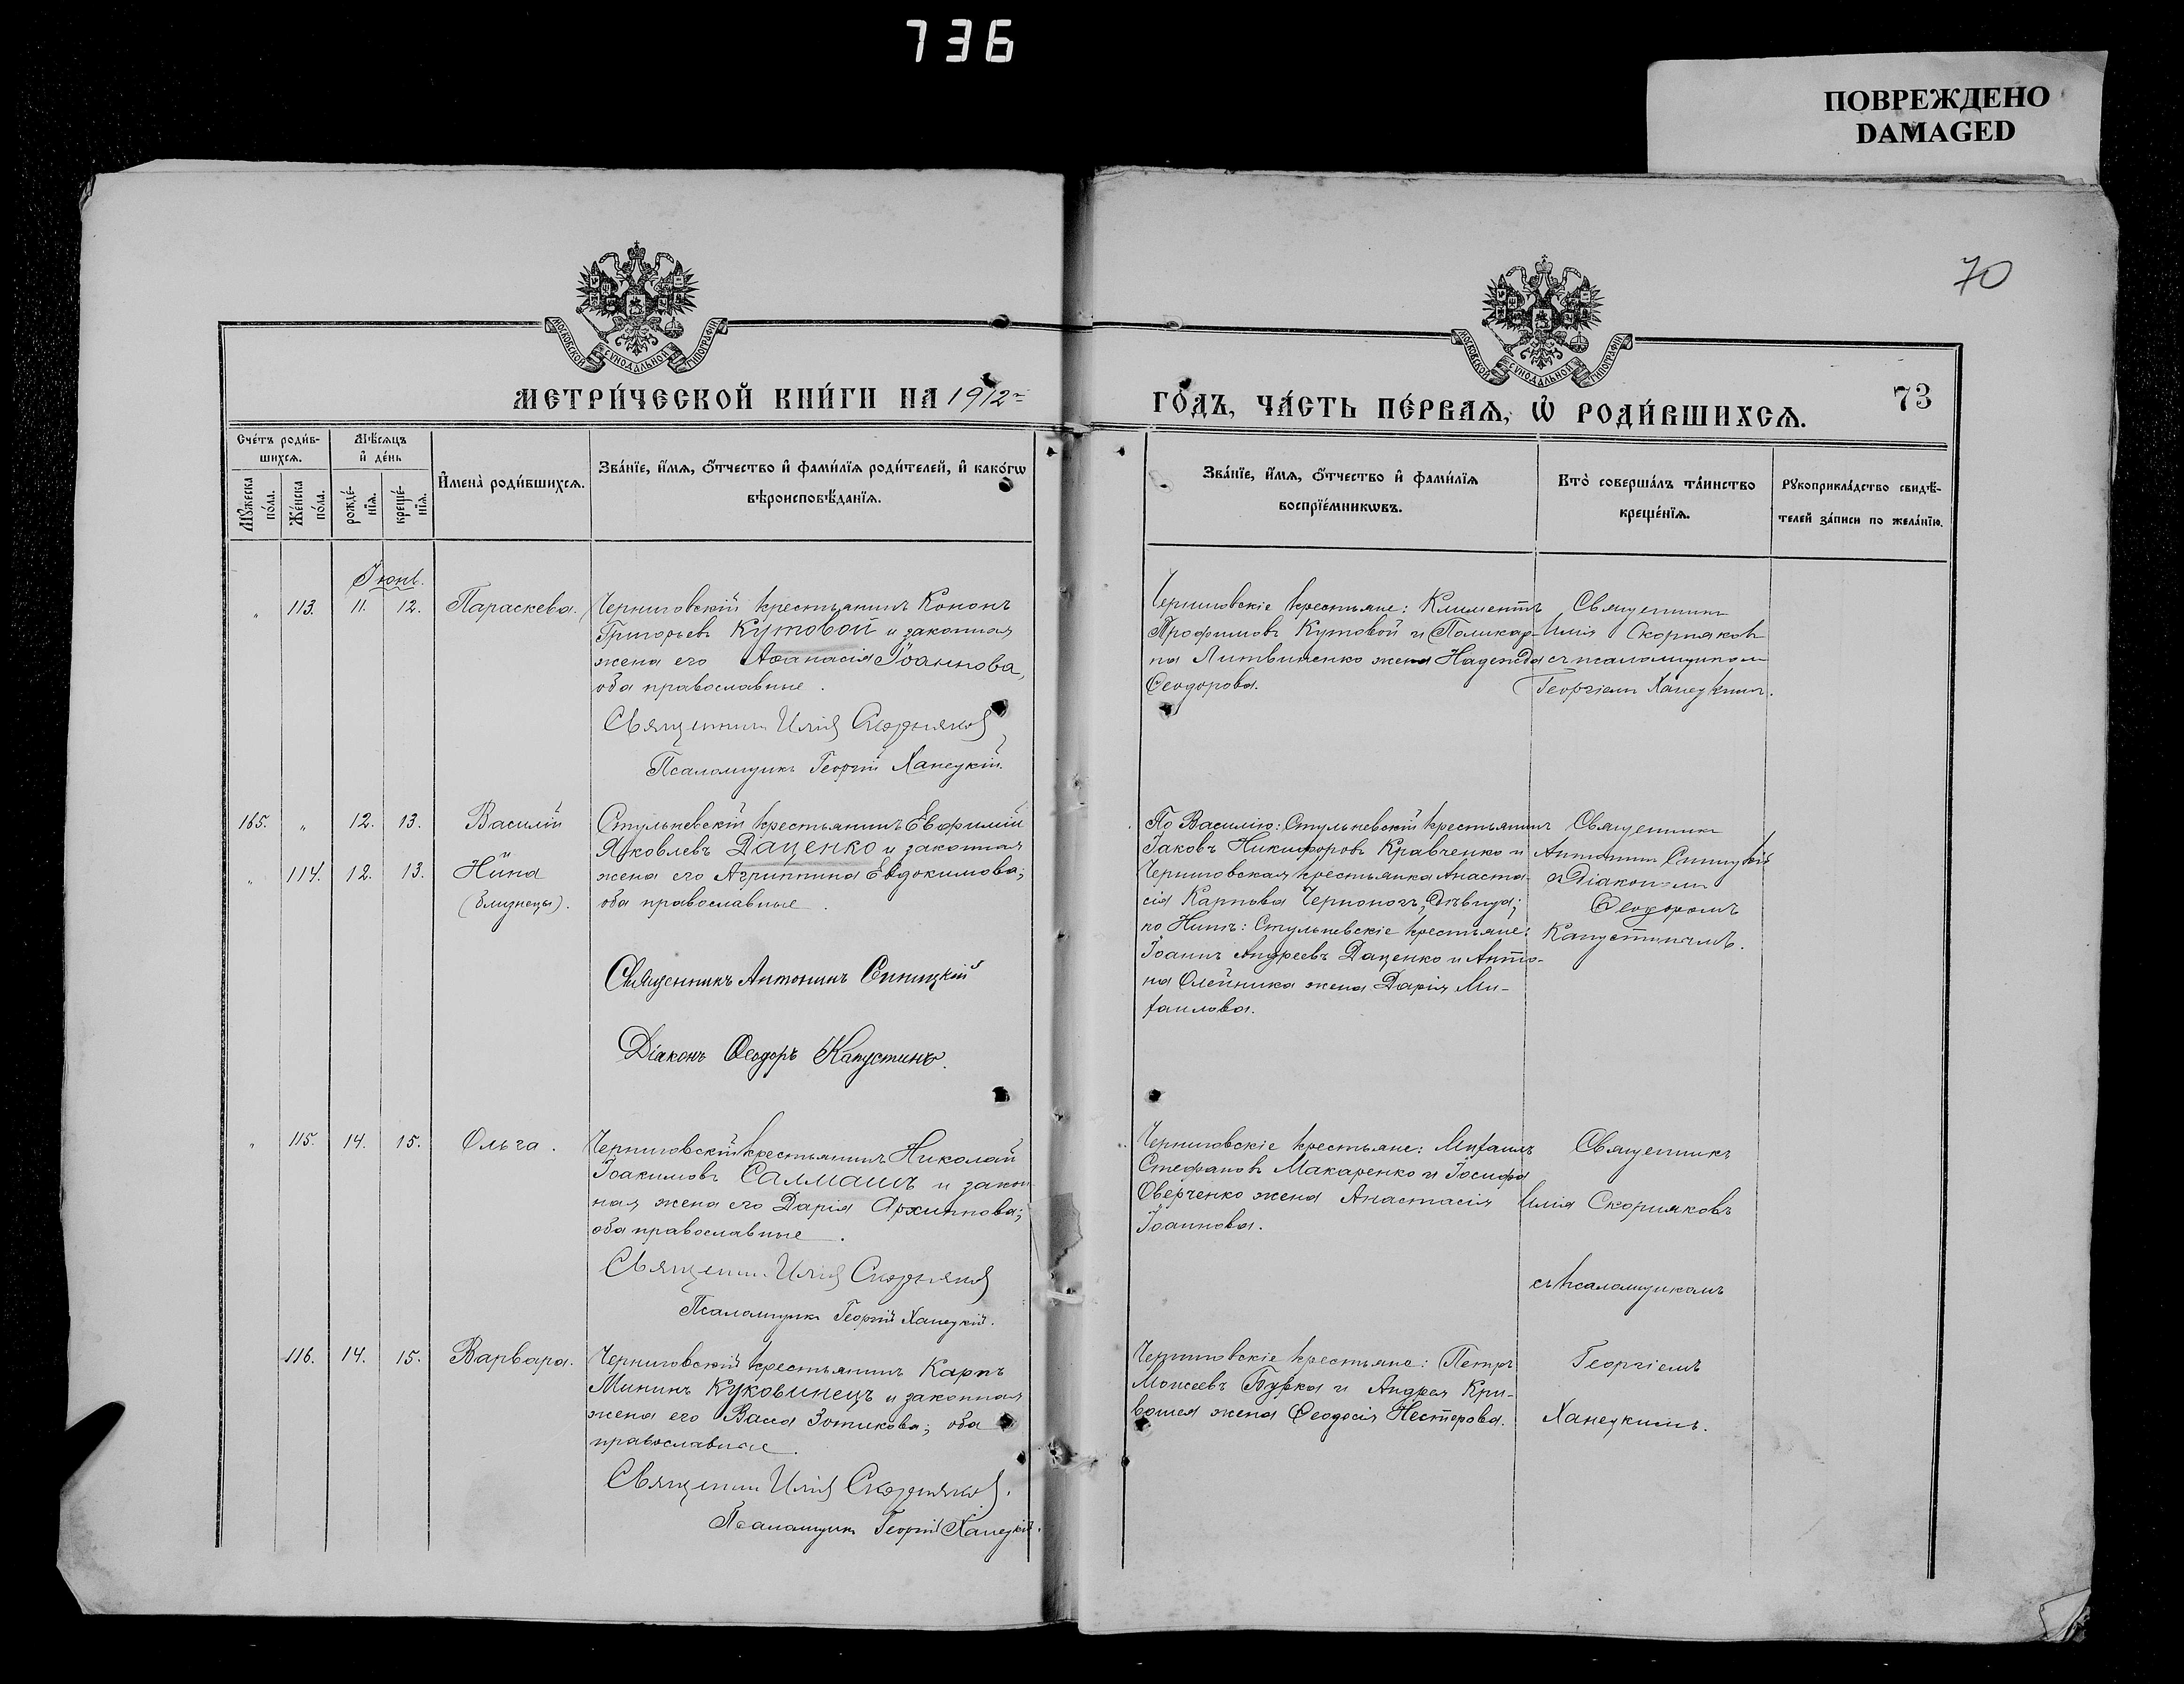 736
ПОВРЕЖДЕНО
DAMAGED
70
МОСКОВСКОЙ СѴНОДАЛЬНОЙ ТИПОГРАФІИ
МОСКОВСКОЙ СѴНОДАЛЬНОЙ ТИПОГРАФІИ
МЕТРИ́ЧЕСКОЙ КНИ́ГИ НА 1912 г
ГО́ДЪ, ЧА́СТЬ ПЕ́РВАѦ, Ѡ҆ РОДИ́ВШИХСѦ.
73
Сче́тъ роди́в-
шихсѧ.
Мꙋ́жеска
по́ла.
Же́нска
по́ла.
Мѣ́сѧцъ
и҆ де́нь
рожде́-
нїѧ.
креще́-
нїѧ.
И҆мена̀ роди́вшихсѧ.
Зва́нїе, и҆́мѧ, ѻ҆́тчество и҆ фами́лїѧ роди́телей, и҆ како́гѡ
вѣроисповѣ́данїѧ.
Зва́нїе, и҆́мѧ, ѻ҆́тчество и҆ фами́лїѧ
воспрїе́мникѡвъ.
Кто̀ соверша́лъ та́инство
креще́нїѧ.
Рꙋкоприкла́дство свидѣ́-
телей за́писи по жела́нїю.
Іюнь.
" 113. 11. 12. Параскева.
Черниговскій крестьянинъ Кононъ
Григорьевъ Кутовой и законная
жена его Аѳанасія Іоаннова,
оба православные.
Священникъ Илія Скорняковъ
Псаломщикъ Георгій Ханецкій.
Черниговскіе крестьяне: Климентъ
Трофимовъ Кутовой и Поликар-
па Литвиненко жена Надежда
Ѳеодорова.
Священникъ
Илія Скорняковъ
съ псаломщикомъ
Георгіемъ Ханецкимъ.
165. " 12. 13. Василій
" 114. 12. 13. Нина
(близнецы).
Стульневскій крестьянинъ Евфимій
Яковлевъ Даценко и законная
жена его Агриппина Евдокимова;
оба православные.
Священникъ Антонинъ Синицкій
Діаконъ Ѳеодоръ Капустинъ.
По Василію: Стульневскій крестьянинъ
Іаковъ Никифоровъ Кравченко и
Черниговская крестьянка Анаста-
сія Карпова Черноногъ, дѣвица;
по Нинѣ: Стульневскіе крестьяне:
Іоаннъ Андреевъ Даценко и Анто-
на Олейника жена Дарія Ми-
хаилова.
Священникъ
Антонинъ Синицкій
съ Діакономъ
Ѳеодоромъ
Капустинымъ.
" 115. 14. 15. Ольга.
Черниговскій крестьянинъ Николай
Іоакимовъ Салмашъ и закон-
ная жена его Дарія Архиппова;
оба православные.
Священникъ Илія Скорняковъ
Псаломщикъ Георгій Ханецкій.
Черниговскіе крестьяне: Михаилъ
Стефановъ Макаренко и Іосифа
Оверченко жена Анастасія
Іоаннова.
Священникъ
Илія Скорняковъ
съ псаломщикомъ
116. 14. 15. Варвара.
Черниговскій крестьянинъ Карпъ
Мининъ Куковинецъ и законная
жена его Васса Зотикова; оба
православные.
Священникъ Илія Скорняковъ.
Псаломщикъ Георгій Ханецкій.
Черниговскіе крестьяне: Петръ
Моисеевъ Бурка и Андрея Кри-
вошея жена Ѳеодосія Нестерова.
Георгіемъ
Ханецкимъ.